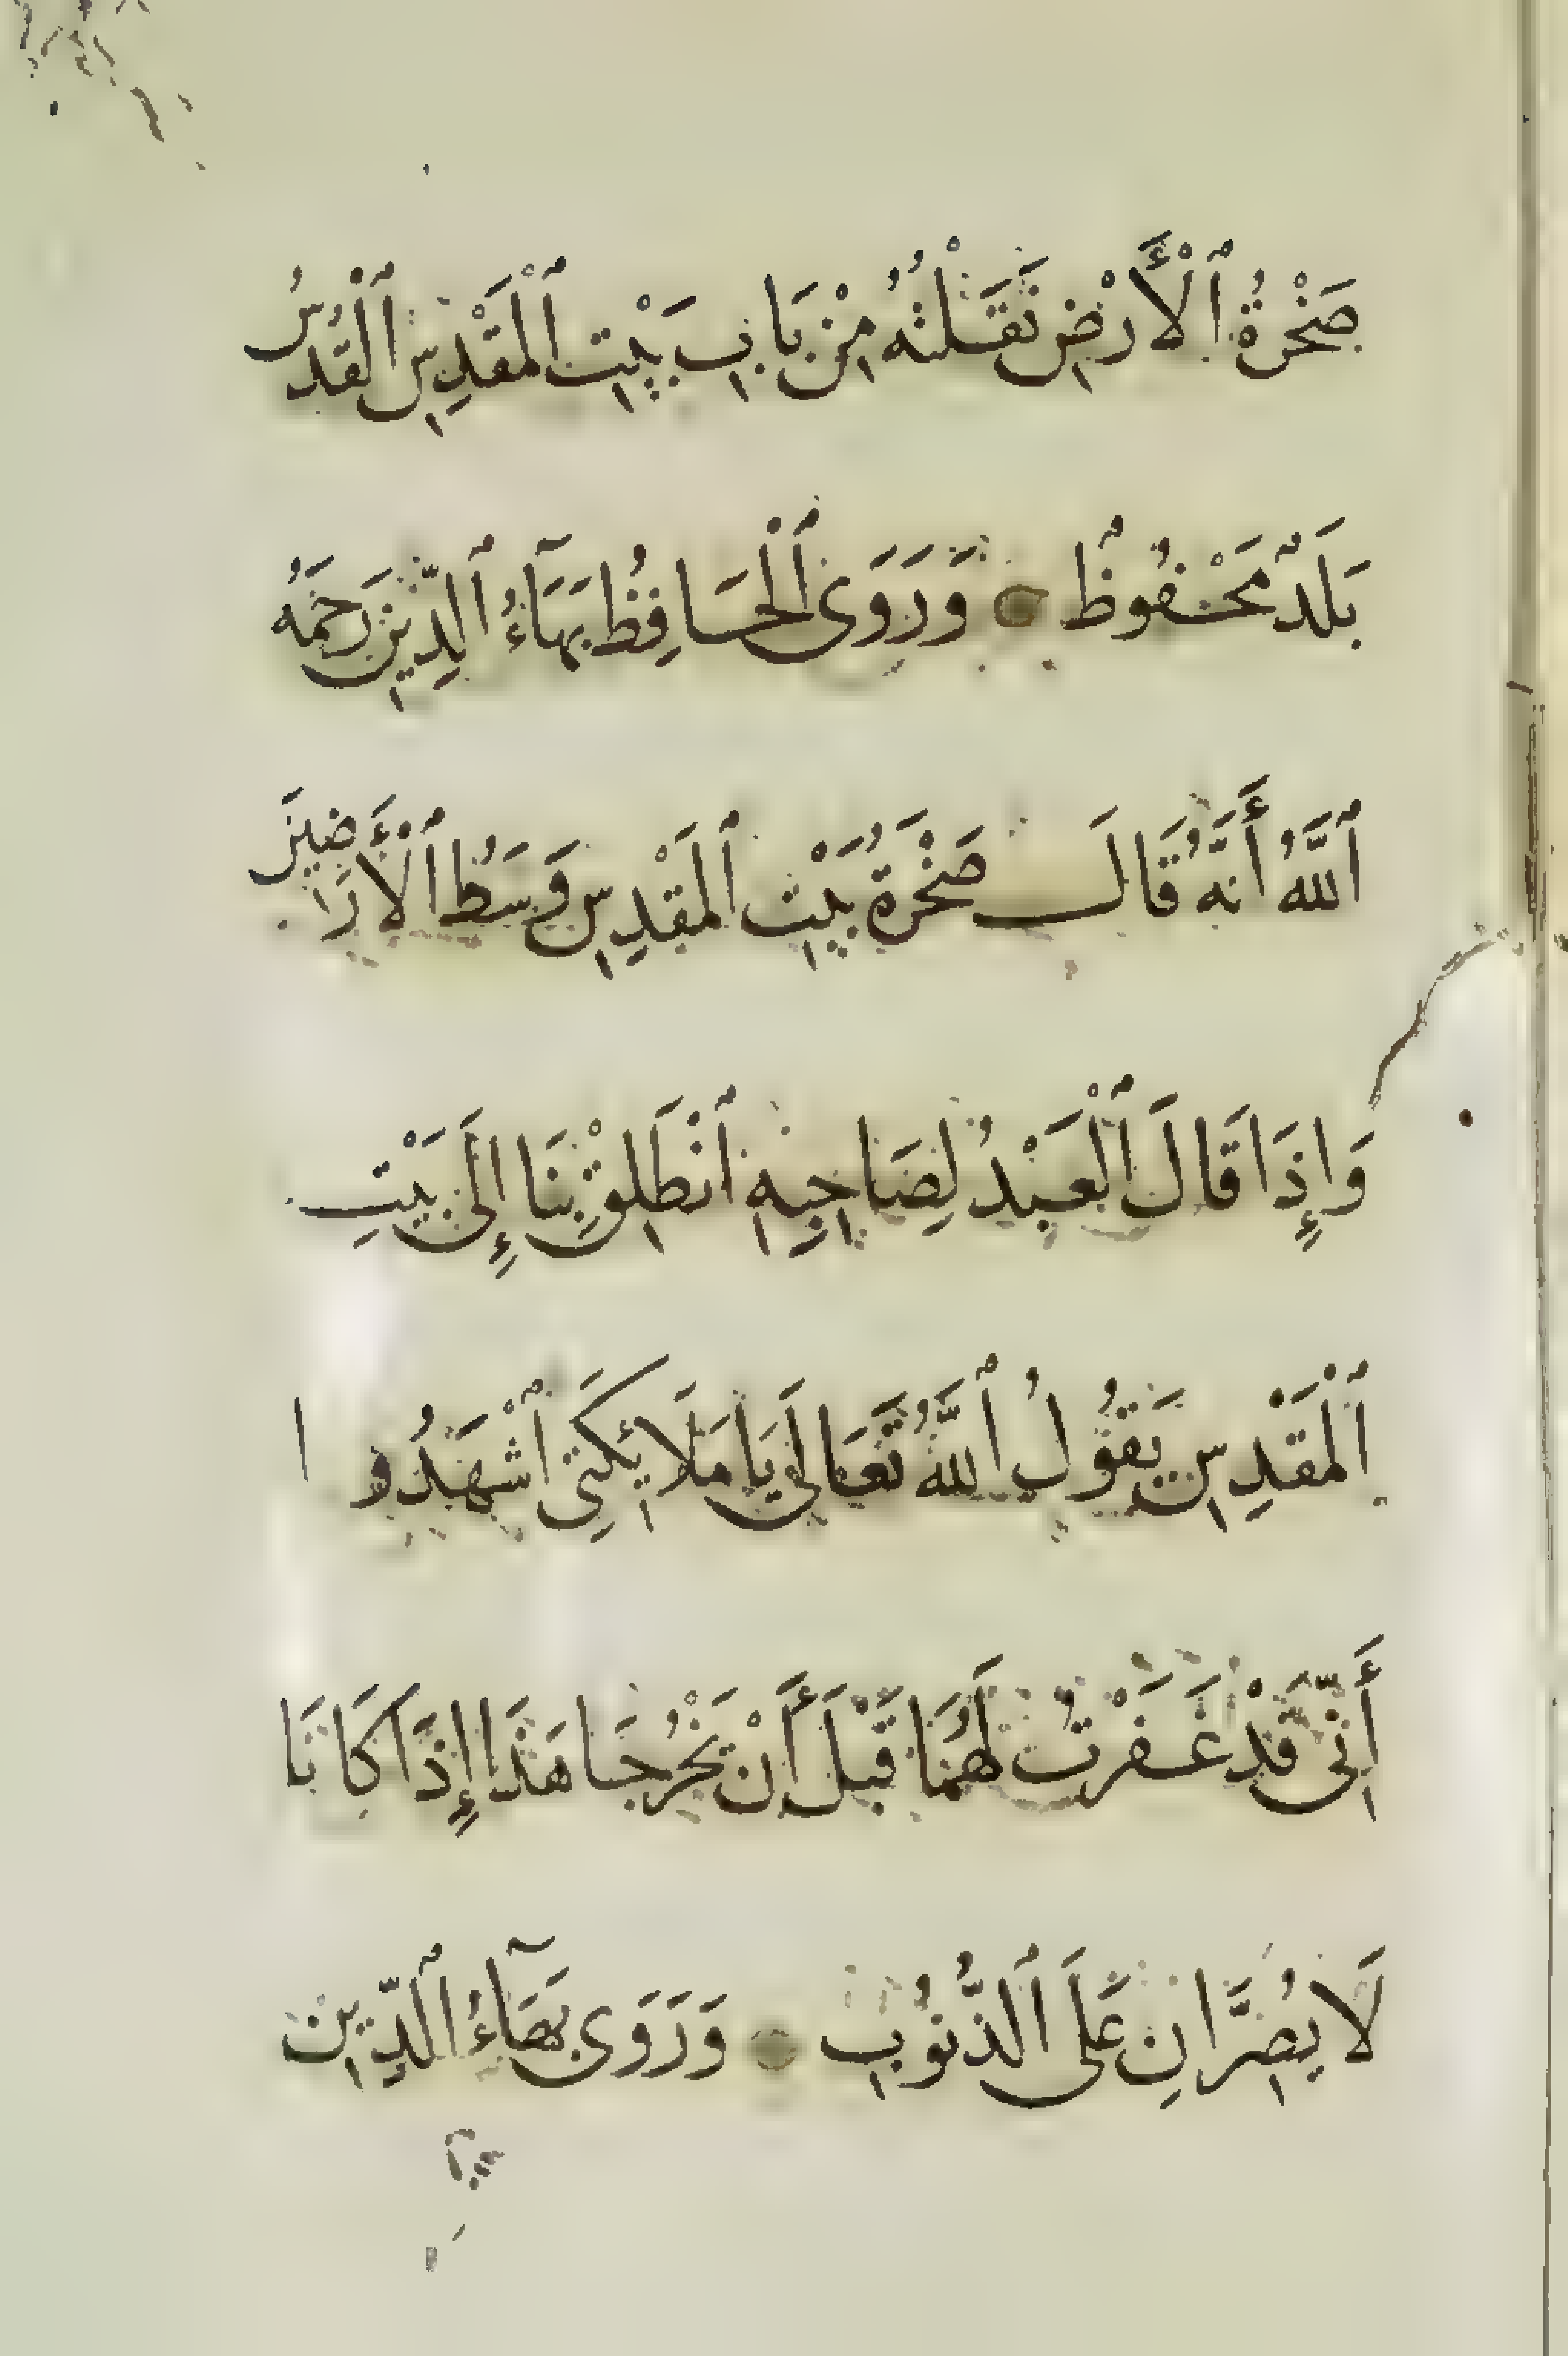 صَخْرَةُ ٱلْأَرْضِ نَقَلْتُهُ مِنْ بَابِ بَيْتِ ٱلْمَقْدِسِ ٱلْقُدْسُ
بَلَدٌ مَحْفُوظٌ وَرَوَى ٱلْحَافِظُ بَهَآءُ ٱلدِّينِ رَحِمَهُ
ٱللَّهُ أَنَّهُ قَالَ صَخْرَةُ بَيْتِ ٱلْمَقْدِسِ وَسَطُ ٱلْأَرَاضِينَ
وَإِذَا قَالَ ٱلْعَبْدُ لِصَاحِبِهِ ٱنْطَلِقْ بِنَا إِلَى بَيْتِ
ٱلْمَقْدِسِ يَقُولُ ٱللَّهُ تَعَالَى يَا مَلَائِكَتِى ٱشْهَدُوا
أَنِّى قَدْ غَفَرْتُ لَهُمَا قَبْلَ أَنْ يَخْرُجَا هَذَا إِذَا كَانَا
لَا يُصِرَّانِ عَلَى ٱلذُّنُوبِ وَرَوَى بَهَآءُ ٱلدِّينِ